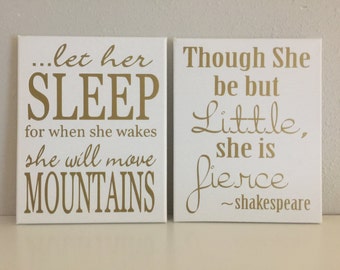 ...let her
SLEEP
for when she wakes
she will move
MOUNTAINS
Though She
be but
Little,
she is
fierce
~shakespeare